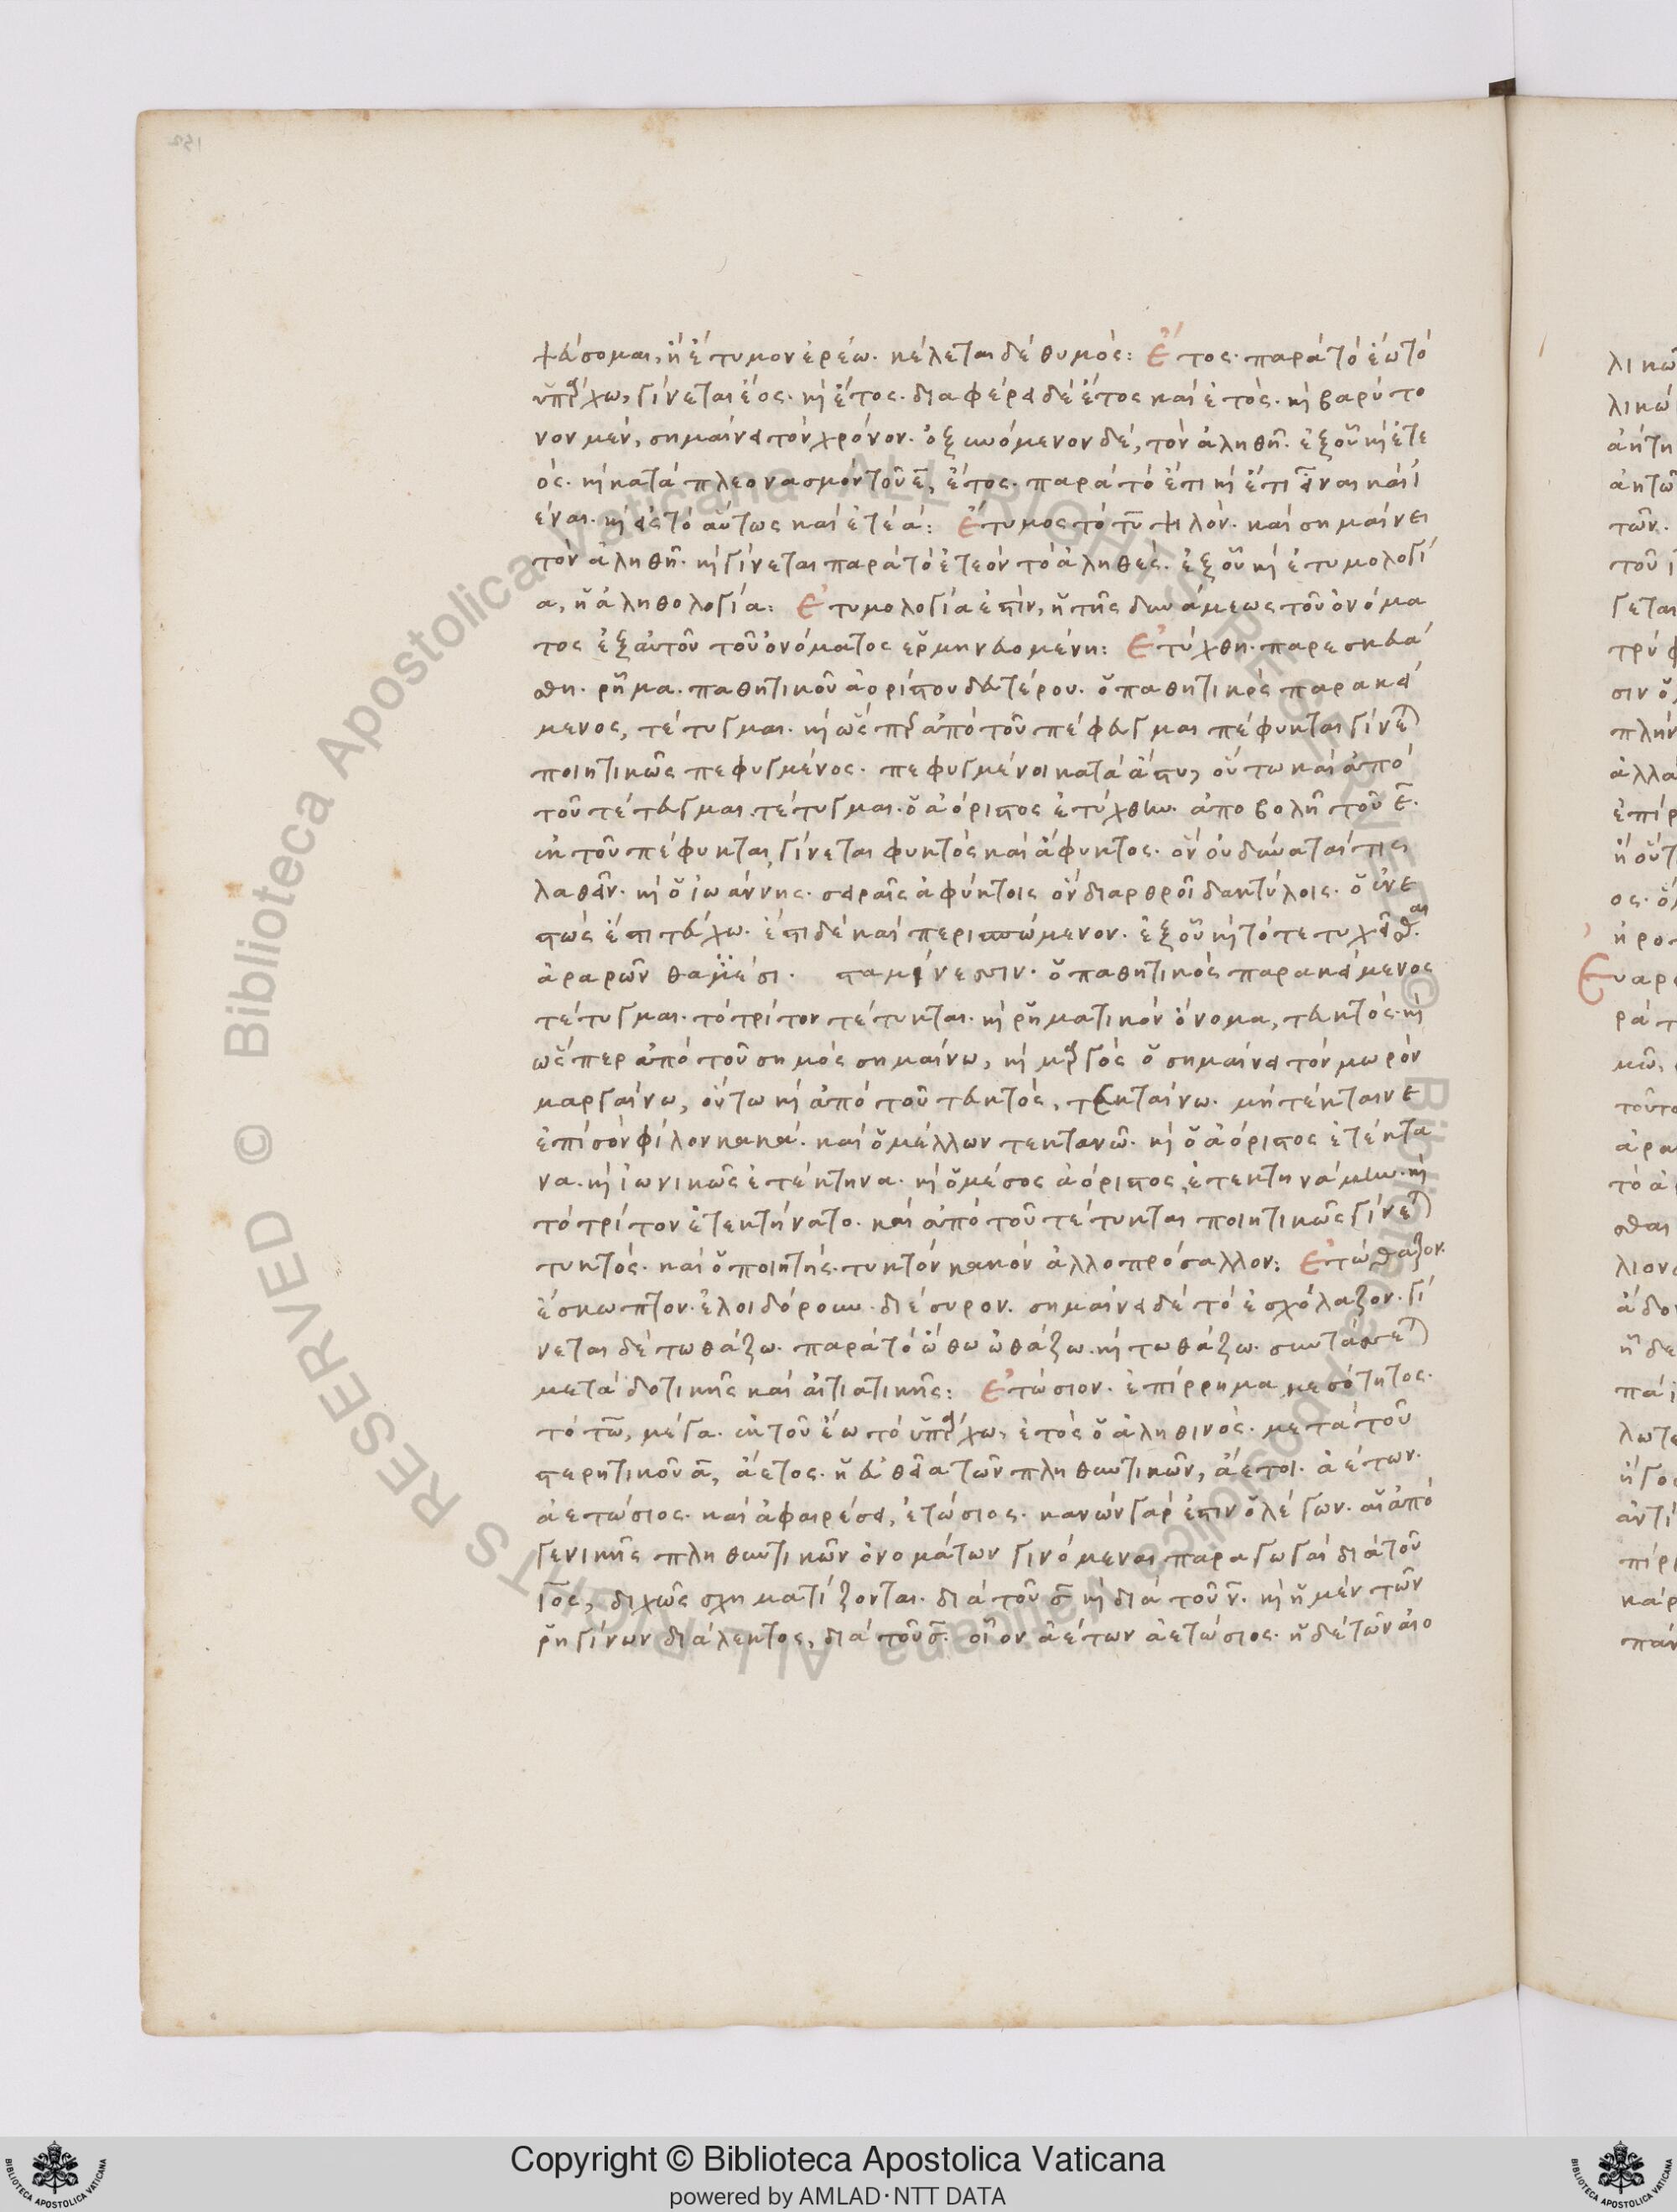 ψεύσομαι, ἢ ἔτυμον ἐρέω. κέλεται δέ θυμός: Ἔτος. παρά τό ἔω τό
ὑπάρχω, γίνεται ἔος. καὶ ἔτος. διαφέρει δέ ἔτος καί ἐτός. καὶ βαρύτο
νον μέν, σημαίνει τόν χρόνον. ὀξυνόμενον δέ, τόν ἀληθῆ. ἐξοῦ καὶ ἐτε
ός. καὶ κατά πλεονασμόν τοῦ ε̅, ἔτος. παρά τό ἔτι καὶ ἔτι εἶναι καί ἰ
έναι. καὶ εἰς τό αὔτως καί ἐτεά: Ἔτυμος τό τυ̅ ψιλόν. καί σημαίνει
τόν ἀληθῆ. καὶ γίνεται παρά τό ἐτεόν τό ἀληθές. ἐξοῦ καὶ ἐτυμολογί
α, ἡ ἀληθολογία: Ἐτυμολογία ἐστίν, ἡ τῆς δυνάμεως τοῦ ὀνόμα
τος ἐξ αὐτοῦ τοῦ ὀνόματος ἑρμηνευομένη: Ἐτύχθη. παρεσκευά
σθη. ῥῆμα. παθητικοῦ ἀορίστου δευτέρου. ὁ παθητικός παρακεί
μενος, τέτυγμαι. καὶ ὥσπερ ἀπό τοῦ πέφευγμαι πέφυκται γίνεται
ποιητικῶς πεφυγμένος. πεφυγμένοι κατά ἄστυ, οὕτω καί ἀπό
τοῦ τέτευγμαι τέτυγμαι. ὁ ἀόριστος ἐτύχθην. ἀποβολῇ τοῦ ε̅.
ἐκ τοῦ πέφυκται γίνεται φυκτός καί ἄφυκτος. ὅν οὐ δύναταί τις
λαθεῖν. καὶ ὁ ἰωάννης. σειραῖς ἀφύκτοις ὅν διαρθροῖ δακτύλοις. ὁ ἐνε
στώς ἐστι τεύχω. ἔστι δέ καί περισπώμενον. ἐξοῦ καὶ τό τετυχεῖσθαι
ἀραρῶν θαμέσι. σταμίνεσσιν. ὁ παθητικός παρακείμενος
τέτυγμαι. τό τρίτον τέτυκται. καὶ ῥηματικόν ὄνομα, τευκτός. καὶ
ὥσπερ ἀπό τοῦ σημός σημαίνω, καὶ μαργός ὁ σημαίνει τόν μωρόν
μαργαίνω, οὕτω καὶ ἀπό τοῦ τευκτός, τεκταίνω. μή τέκταινε
ἐπί σόν φίλον κακά. καί ὁ μέλλων τεκτανῶ. καὶ ὁ ἀόριστος ἐτέκτα
να. καὶ ἰωνικῶς ἐτέκτηνα. καὶ ὁ μέσος ἀόριστος ἐτεκτηνάμην. καὶ
τό τρίτον ἐτεκτήνατο. καί ἀπό τοῦ τέτυκται ποιητικῶς γίνεται
τυκτός. καί ὁ ποιητής. τυκτόν κακόν ἀλλοπρόσαλλον: Ἐτώθαζον.
ἔσκωπτον. ἐλοιδόρουν. διέσυρον. σημαίνει δέ τό ἐσχόλαζον. γί
νεται δέ τωθάζω. παρά τό ὤθω ὠθάζω. καὶ τωθάζω. συντάσσεται
μετά δοτικῆς καί αἰτιατικῆς: Ἐτώσιον. ἐπίρρημα μεσότητος.
τό τω̅, μέγα. ἐκ τοῦ ἔω τό ὑπάρχω, ἐτός ὁ ἀληθινός. μετά τοῦ
στερητικοῦ α̅, ἄετος. ἡ εὐθεῖα τῶν πληθυντικῶν, ἄετοι. ἀέτων.
ἀετώσιος. καί ἀφαιρέσει, ἐτώσιος. κανών γάρ ἐστιν ὁ λέγων. αἱ ἀπό
γενικῆς πληθυντικῶν ὀνομάτων γινόμεναι παραγωγαί διά τοῦ
ιος, διχῶς σχηματίζονται. διά τοῦ σ̅ καὶ διά τοῦ ν̅. καὶ ἡ μέν τῶν
ῥηγίνων διάλεκτος, διά τοῦ σ̅. οἷον ἀέτων ἀετώσιος. ἡ δέ τῶν αἰο
Copyright © Biblioteca Apostolica Vaticana
powered by AMLAD·NTT DATA